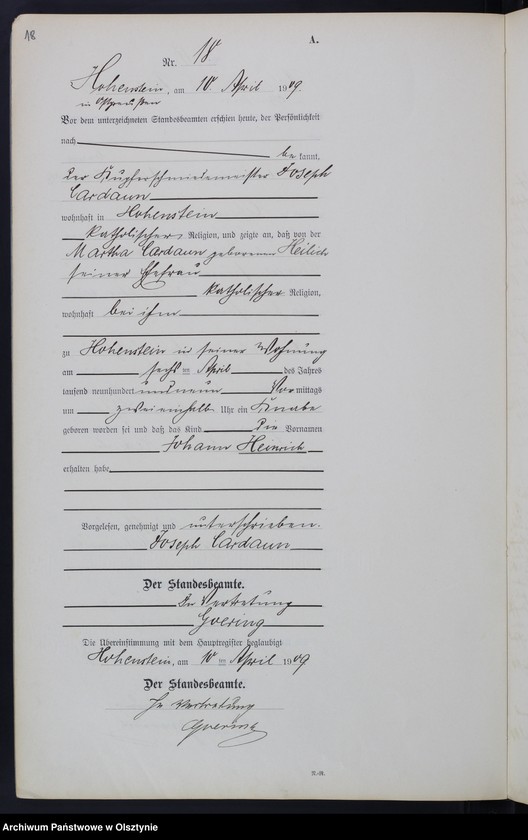 18
A.
Nr. 18
Hohenstein, am 10. April 1909.
in Ostpreußen
Vor dem unterzeichneten Standesbeamten erschien heute, der Persönlichkeit
nach
be kannt,
der Kupferschmiedemeister Joseph
Cardaun
wohnhaft in Hohenstein
katholischer Religion, und zeigte an, daß von der
Martha Cardaun geborenen
seiner Ehefrau
katholischer Religion,
wohnhaft bei ihm
zu Hohenstein in seiner Wohnung
am sechs ten April des Jahres
tausend neunhundert und neun Vor mittags
um zweieinhalb Uhr ein Knabe
geboren worden sei und daß das Kind die Vornamen
Johann Heinrich
erhalten habe
Vorgelesen, genehmigt und unterschrieben.
Joseph Cardaun
Der Standesbeamte.
In Vertretung
Goering
Die Übereinstimmung mit dem Hauptregister beglaubigt
Hohenstein, am 10 ten April 1909
Der Standesbeamte.
In Vertretung
Goering
Archiwum Państwowe w Olsztynie